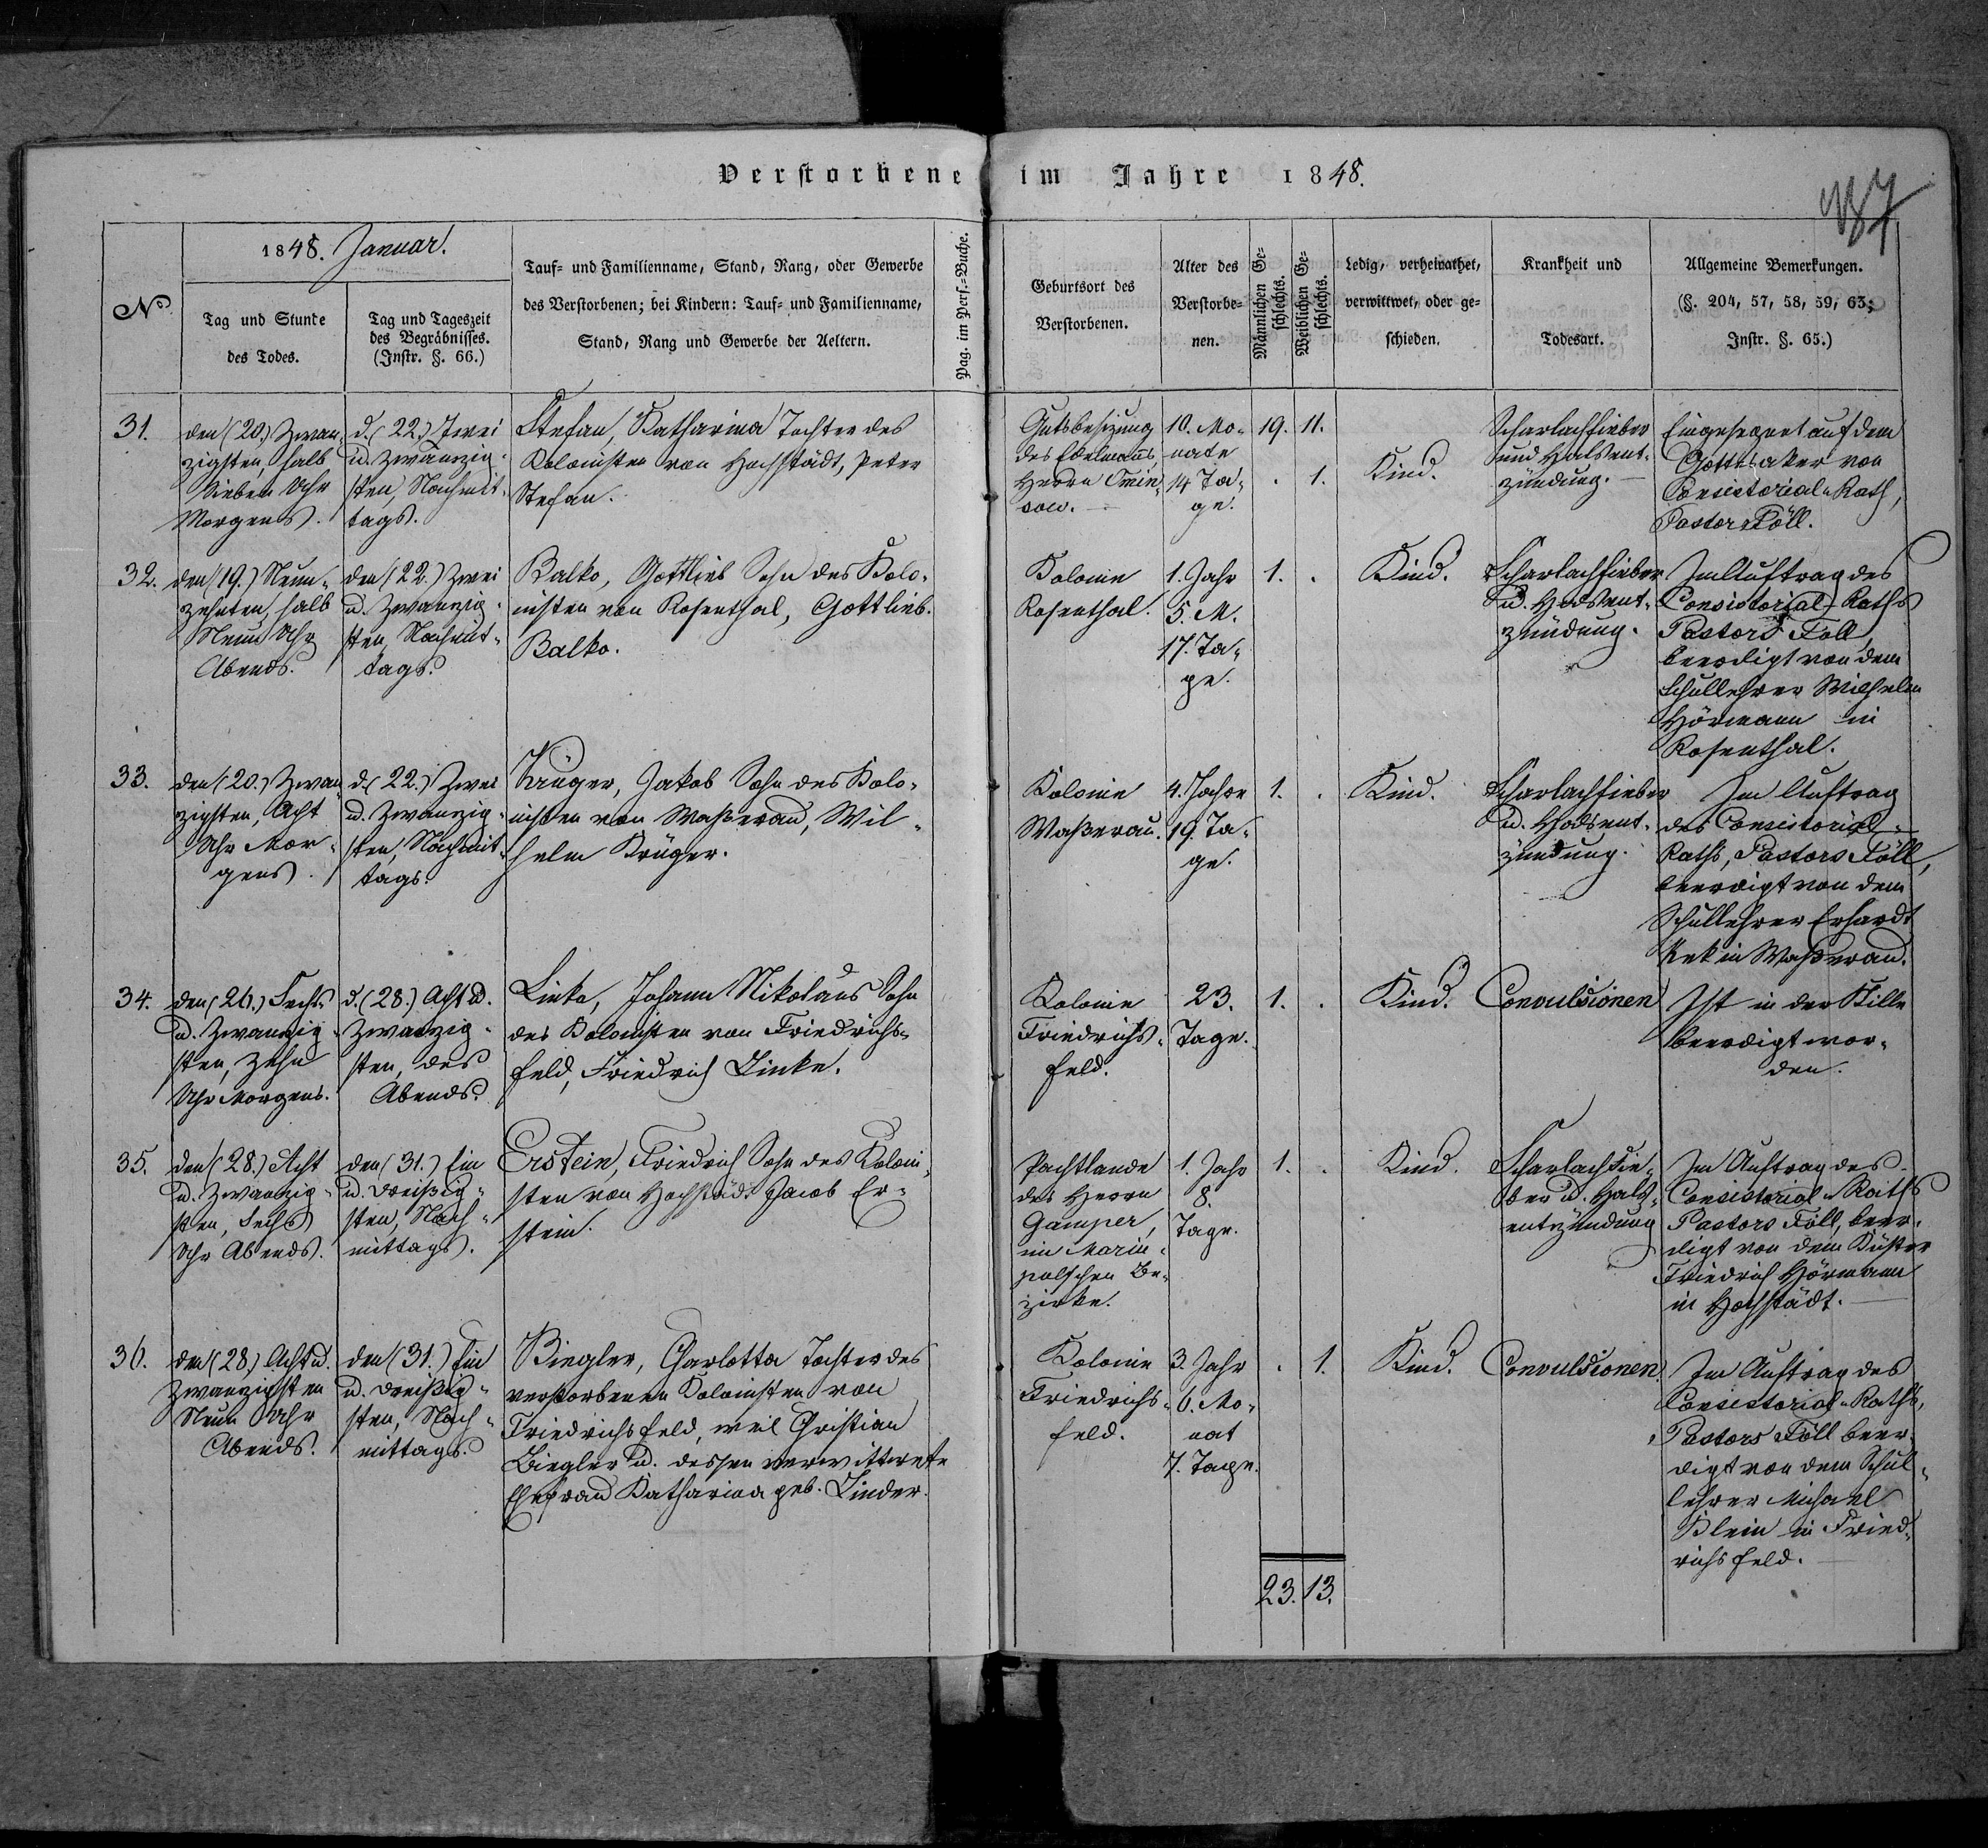 Verstorbene im Jahre 1848.
187
No
1848. Januar.
Tag und Stunde
des Todes.
Tag und Tageszeit
des Begräbnisses.
(Instr. §. 66.)
Tauf= und Familienname, Stand, Rang, oder Gewerbe
des Verstorbenen; bei Kindern: Tauf= und Familienname,
Stand, Rang und Gewerbe der Aeltern.
Pag. im Pers.=Buche.
Geburtsort des
Verstorbenen.
Alter des
Verstorbe=
nen.
Männlichen Ge=
schlechts.
Weiblichen Ge=
schlechts.
Ledig, verheirathet,
verwittwet, oder ge=
schieden.
Krankheit und
Todesart.
Allgemeine Bemerkungen.
(§. 204, 57, 58, 59, 63;
Instr. §. 65.)
31.
den (20.) Zwan=
zigsten, halb
Sieben Uhr
Morgens.
d. (22.) Zwei
u. zwanzig=
sten, Nachmit=
tags.
Stefan, Katharina Tochter des
Kolonisten von Hochstädt, Peter
Stefan.
Gutsbesizung
des Edelmanns
Herrn
10. Mo=
nate
14 Ta=
ge.
19. 11.
. 1.
Kind.
Scharlachfieber
und Halsent=
zündung.
Eingesegnet auf dem
Gottesaker von
Consistorial=Rath,
Pastor Föll.
32.
den (19.) Neun=
zehnten, halb
Neun Uhr
Abends.
den (22.) Zwei
u. Zwanzig=
sten, Nachmit=
tags.
Balko, Gottlieb Sohn des Kolo=
nisten von Rosenthal, Gottlieb
Balko.
Kolonie
Rosenthal.
1. Jahr
5. M.
17. Ta=
ge.
1. .
Kind.
Scharlachfieber
u. Halsent=
zündung.
Im Auftrag des
Consistorial=Raths
Pastors Föll,
beerdigt von dem
Schullehrer Wilhelm
Hörmann in
Rosenthal.
33.
den (20.) Zwan=
zigsten, Acht
Uhr Mor=
gens.
d. (22.) Zwei
u. Zwanzig=
sten, Nachmit=
tags.
Krüger, Jakob Sohn des Kolo=
nisten von Waßerau, Wil=
helm Krüger.
Kolonie
Waßerau.
4. Jahre
19. Ta=
ge.
1. .
Kind.
Scharlachfieber
u. Halsent=
zündung.
Im Auftrag
des Consistorial=
Raths, Pastors Föll,
beerdigt von dem
Schullehrer Erhardt
in Waßerau.
34.
den (26.) Sechs
u. Zwanzig=
sten, Zehn
Uhr Morgens.
d. (28.) Acht u.
Zwanzig=
sten, des
Abends.
Linke, Johann Nikolaus Sohn
des Kolonisten von Friedrichs=
feld, Friedrich Linke.
Kolonie
Friedrichs=
feld.
23.
Tage.
1. .
Kind.
Convulsionen
Ist in der Stille
beerdigt wor=
den.
35.
den (28.) Acht
u. Zwanzig=
sten, Sechs
Uhr Abends.
den (31.) Ein
u. Dreißig=
sten, Nach=
mittags.
Erstein, Friedrich Sohn des Koloni=
sten von Hochstädt Jacob Er=
stein.
Pachtlande
des Herrn
Gamper,
im Mariu=
polschen Be=
zirke.
1. Jahr
8.
Tage.
1. .
Kind.
Scharlachfie=
ber u. Hals=
entzündung
Im Auftrag des
Consistorial=Raths
Pastors Föll, beer=
digt von dem Küster
Friedrich Hörmann
in Hochstädt.
36.
den (28.) Acht u.
Zwanzigsten
Neun Uhr
Abends.
den (31.) Ein
u. Dreißig=
sten, Nach=
mittags.
Biegler, Charlotta Tochter des
verstorbenen Kolonisten von
Friedrichsfeld, weil Christian
Biegler u. dessen verwittwete
Ehefrau Katharina geb. Linder.
Kolonie
Friedrichs=
feld.
3. Jahr
6. Mo=
nat
7. Tage.
. 1.
Kind.
Convulsionen
Im Auftrag des
Consistorial=Raths,
Pastors Föll beer=
digt von dem Schul=
lehrer Michael
Klein in Fried=
richsfeld.
23. 13.